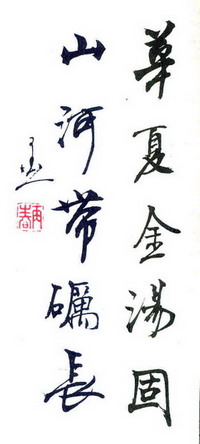 華夏金湯固
山河带礪長